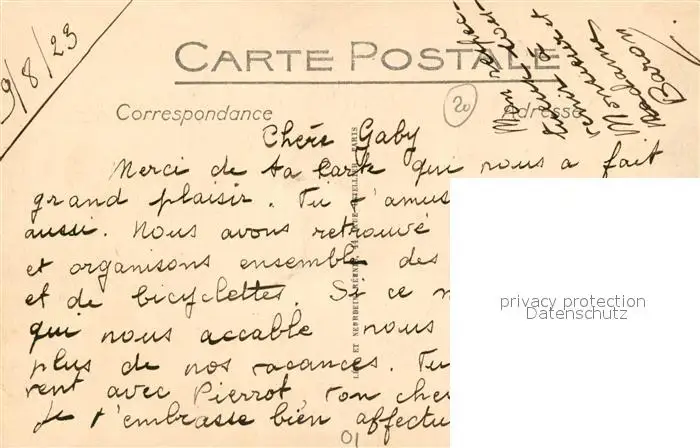 9/8/23
CARTE POSTALE
Correspondance
Adresse
20
Chère Gaby
Merci de ta carte qui nous a fait
grand plaisir. Tu t'amus
aussi. Nous avons retrouvé
et organisons ensemble des
et de bicyclettes. Si ce n
qui nous accable nous
plus de nos vacances. Tu
rent avec Pierrot, ton cher
Je t'embrasse bien affectu
01
Mon respec
Monsieur et
Madame
Baron
privacy protection
Datenschutz